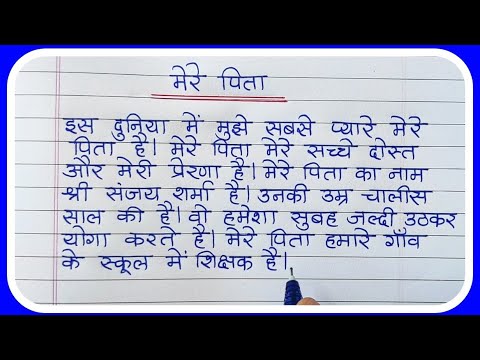 मेरे पिता
इस दुनिया में मुझे सबसे प्यारे मेरे
पिता है। मेरे पिता मेरे सच्चे दोस्त
और मेरी प्रेरणा है। मेरे पिता का नाम
श्री संजय शर्मा है। उनकी उम्र चालीस
साल की है। वो हमेशा सुबह जल्दी उठकर
योगा करते है। मेरे पिता हमारे गाँव
के स्कूल में शिक्षक है।